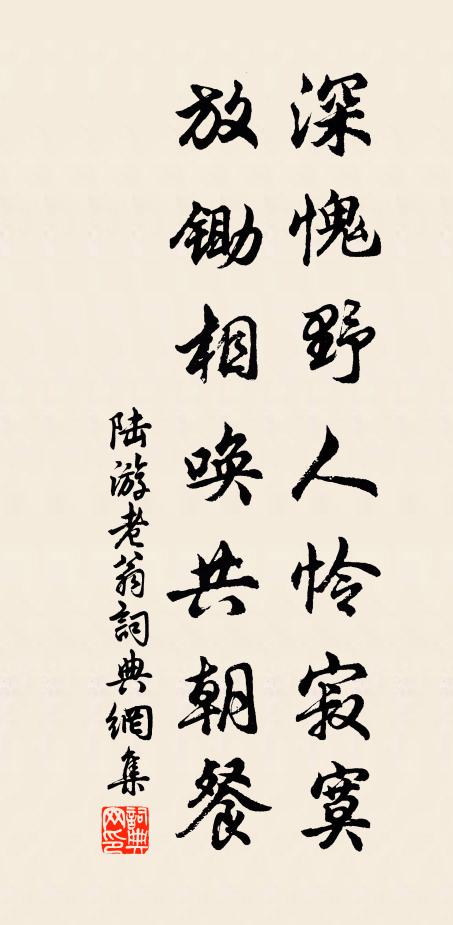 深愧野人怜寂寞
放锄相唤共朝餐
陆游老翁詞典網集
詞典网印